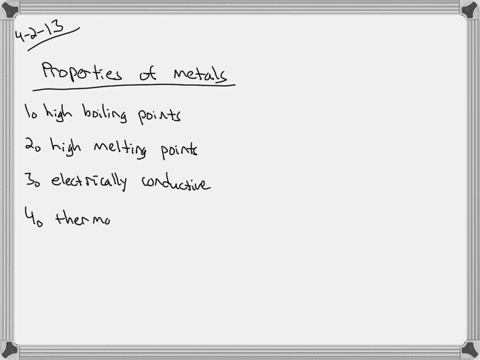 4-2-13
Properties of metals
1. high boiling points
2. high melting points
3. electrically conductive
4. thermo